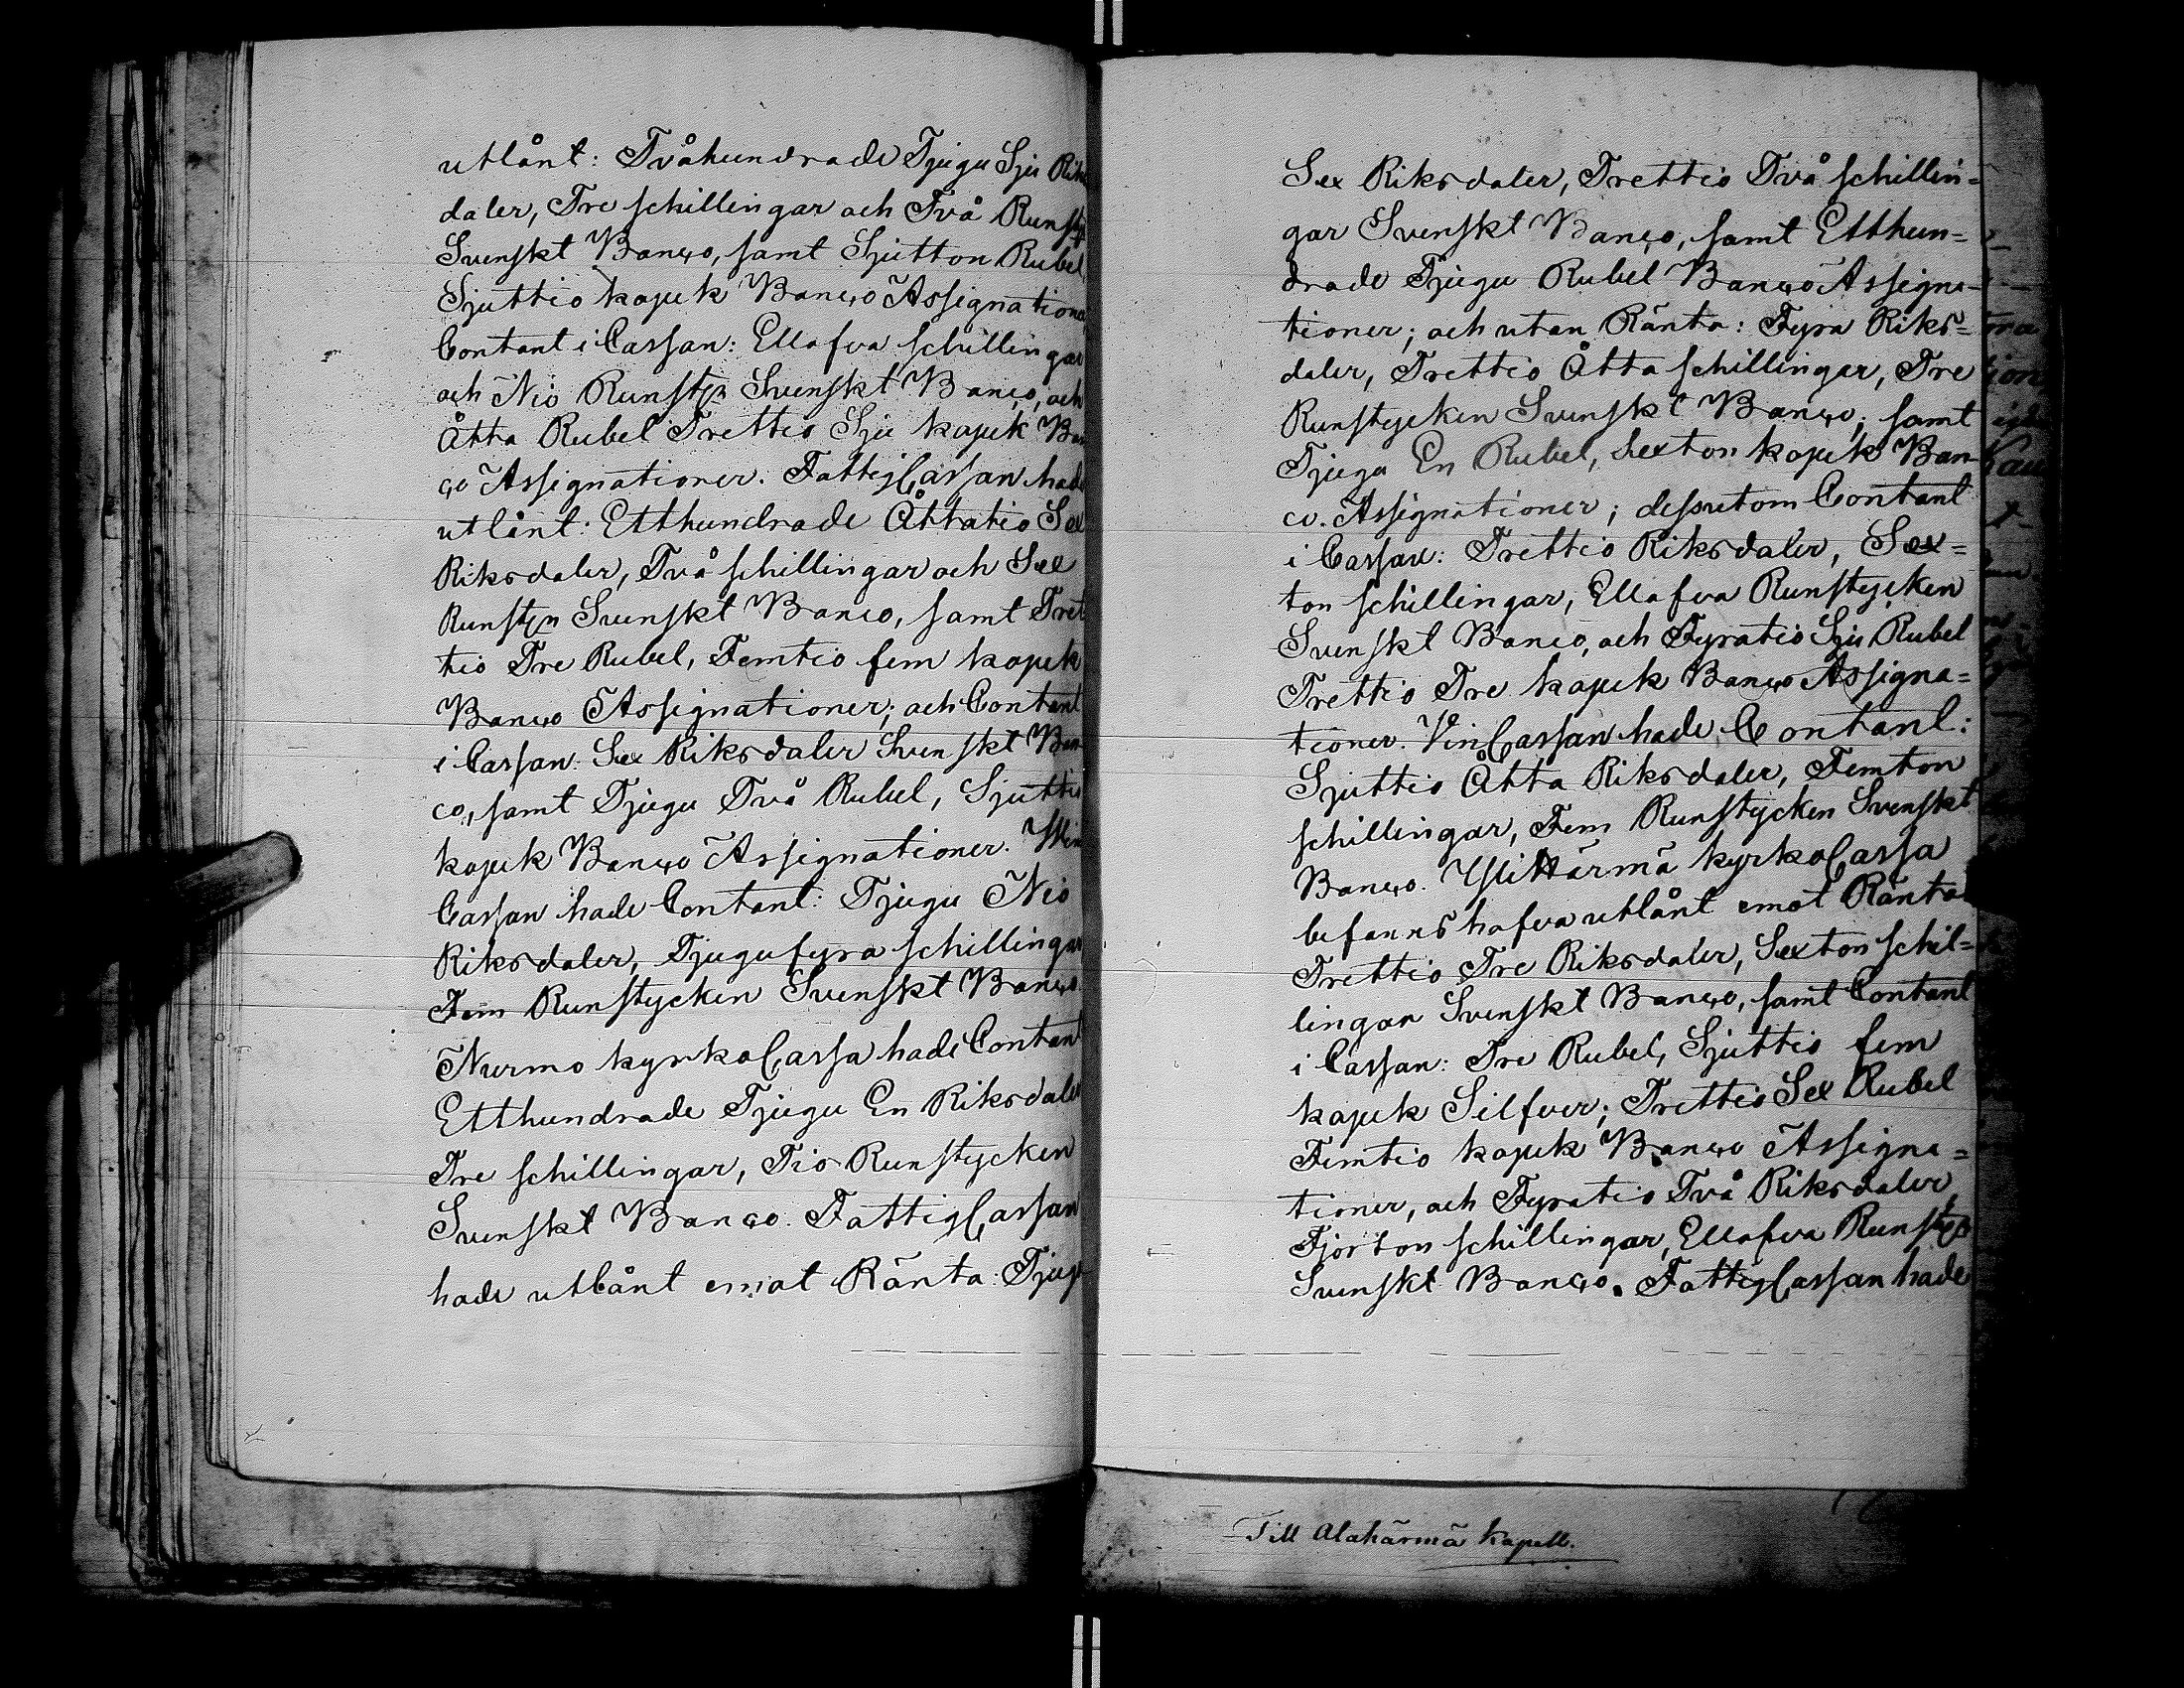 utlånt: Tvåhundrade Tjugu Sju Riks
daler, Tre schillingar och Två Runst
Svenskt Banco, samt Sjutton Rubel,
Sjuttio kopek Banco Assignationer
Contant i Cassan: Ellafva schillingar
och Nio Runst Svenskt Banco, och
Åtta Rubel Trettio Sju kopek Ban
co Assignationer. FattigCassan hade
utlånt: Etthundrade Åttatio Sex
Riksdaler, Två schillingar och Sex
Runst Svenskt Banco, samt Tret
tio Tre Rubel, Femtio fem kopek
Banco Assignationer; och Contant
i Cassan: Sex Riksdaler Svenskt Ban
co, samt Tjugu Två Rubel, Sjuttio
kopek Banco Assignationer. Win
Cassan hade Contant: Tjugu Nio
Riksdaler, Tjugufyra schillingar
Fem Runstycken Svenskt Banco.
Nurmo kyrkoCassa hade Contant
Etthundrade Tjugu En Riksdaler
Tre schillingar, Tio Runstycken
Svenskt Banco. FattigCassan
hade utlånt emot Ränta: Tjugu
Sex Riksdaler, Trettio Två schillin=
gar Svenskt Banco, samt Etthun=
drade Tjugu Rubel Banco Assigna-
tioner; och utan Ränta: Fyra Riks=
daler, Trettio Åtta schillingar, Tre
Runstycken Svenskt Banco; samt
Tjugu En Rubel, Sexton kopek Ban-
co. Assignationer; dessutom Contant
i Cassan: Trettio Riksdaler, Sex=
ton schillingar, Ellafva Runstycken
Svenskt Banco, och Fyratio Sju Rubel
Trettio Tre kopek Banco Assigna=
tioner. VinCassan hade Contant:
Sjuttio Åtta Riksdaler, Femton
schillingar, Fem Runstycken Svenskt
Banco. Ylihärmä kyrkoCassa
befanns hafva utlånt emot Ränta
Trettio Tre Riksdaler, Sexton schil=
lingar Svenskt Banco, samt Contant
i Cassan: Tre Rubel, Sjuttio fem
kopek Silfver; Trettio Sex Rubel
Femtio kopek Banco Assigna=
tioner, och Fyratio Två Riksdaler
Fjorton schillingar, Ellafva Runst
Svenskt Banco. FattigCassan hade
Till Alahärmä kapell.